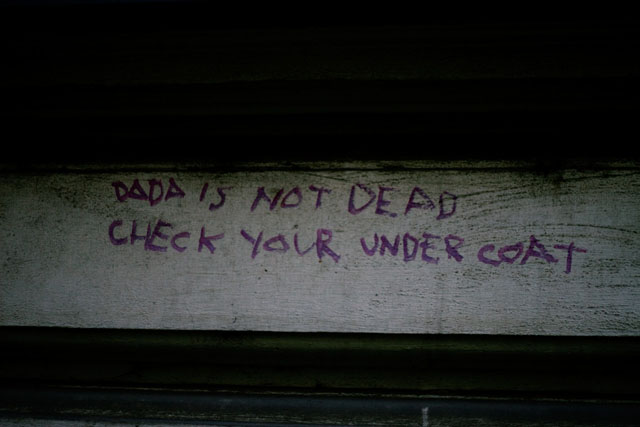 DADA IS NOT DEAD
CHECK YOUR UNDER COAT